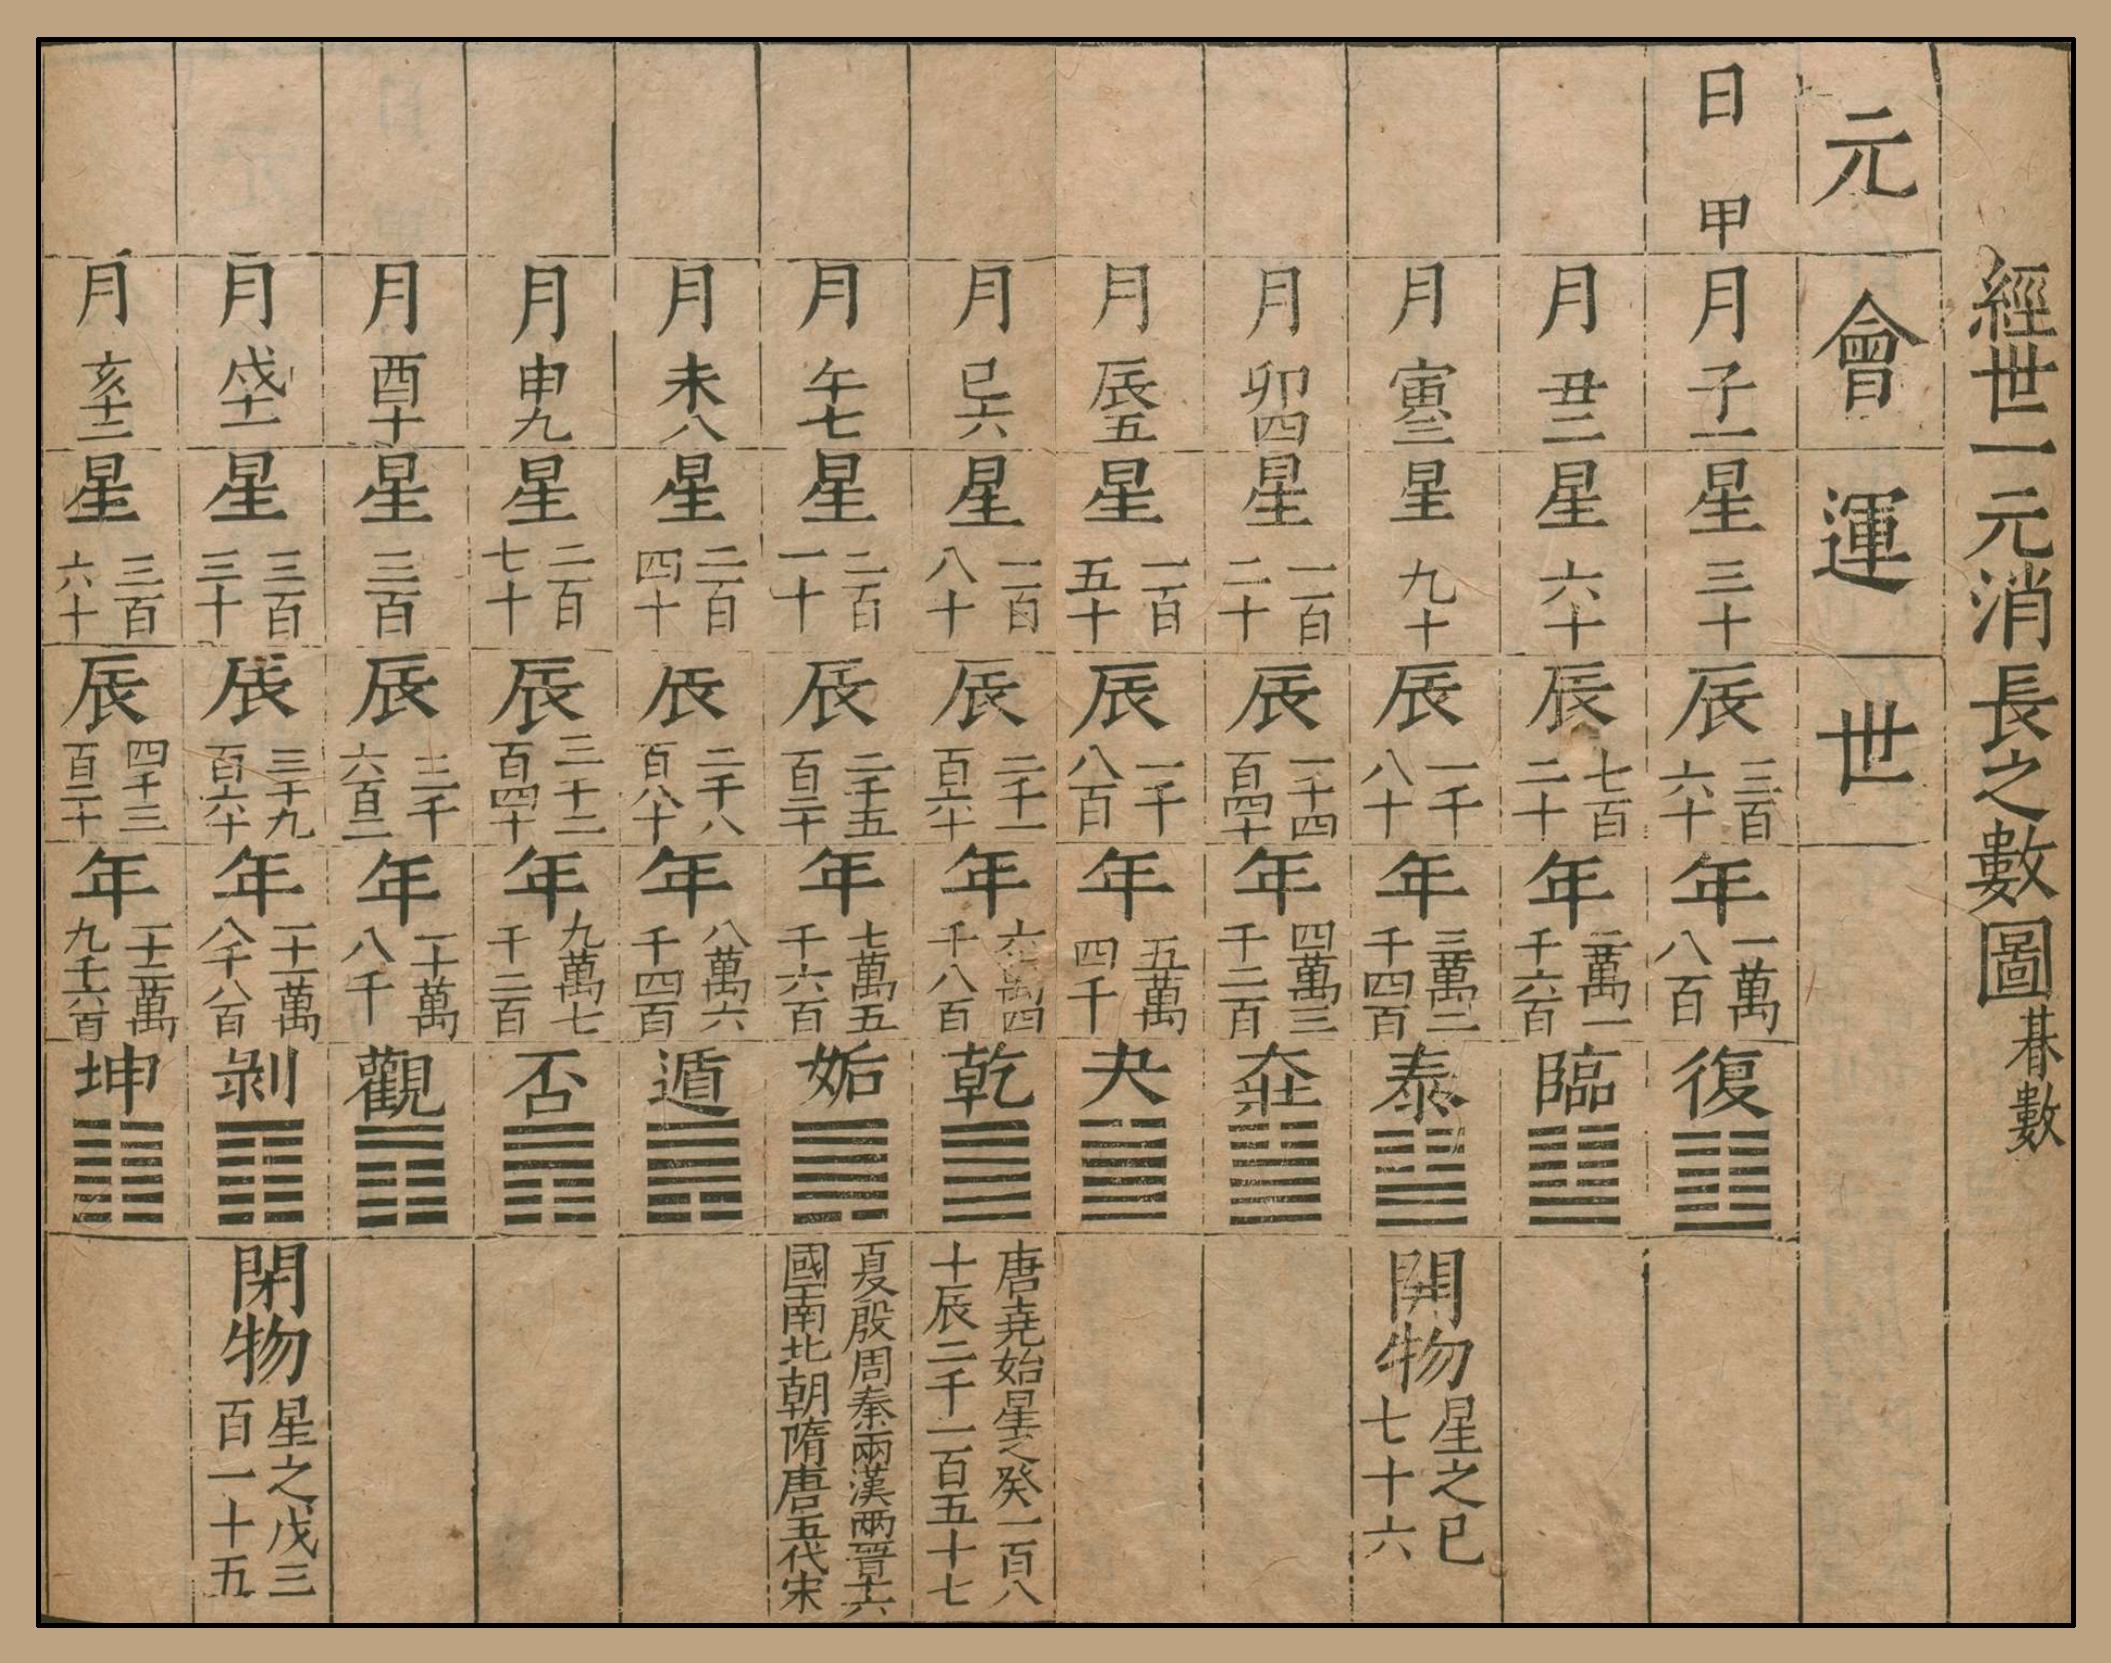 經世一元消長之數圖 朞數
元 會 運 世
日甲 月子一 星三十 辰三百六十 年一萬八百 復
月丑二 星六十 辰七百二十 年二萬一千六百 臨
月寅三 星九十 辰一千八十 年三萬二千四百 泰 開物 星之巳七十六
月卯四 星一百二十 辰一千四百四十 年四萬三千二百 壯
月辰五 星一百五十 辰一千八百 年五萬四千 夬
月巳六 星一百八十 辰二千一百六十 年六萬四千八百 乾 唐堯始星之癸一百八十辰二千一百五十七
月午七 星二百一十 辰二千五百二十 年七萬五千六百 姤 夏殷周秦兩漢兩晉十六國南北朝隋唐五代宋
月未八 星二百四十 辰二千八百八十 年八萬六千四百 遁
月申九 星二百七十 辰三千二百四十 年九萬七千二百 否
月酉十 星三百 辰三千六百 年一十萬八千 觀
月戌十一 星三百三十 辰三千九百六十 年一十一萬八千八百 剝 閉物 星之戊三百一十五
月亥十二 星三百六十 辰四千三百二十 年一十二萬九千六百 坤